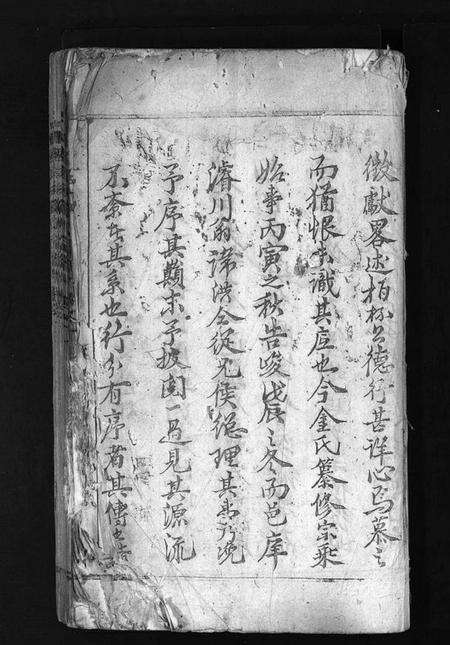 徵獻畧述柏林公德行甚詳心焉慕之
而猶恨未識其店也今金氏纂修宗乘
始事丙寅之秋告竣戊辰之冬而邑庠
濬川翁諱洪令從兄侯總理其事乃
予序其顛末予披圖一過見其源流
不紊者其系也行分有序者其傳也